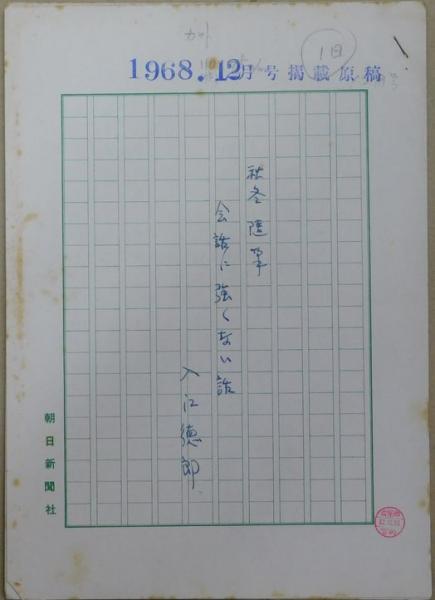 カット
1日
1968.12月号掲載原稿
秋冬随筆
会話に強くない話
入江徳郎
朝日新聞社